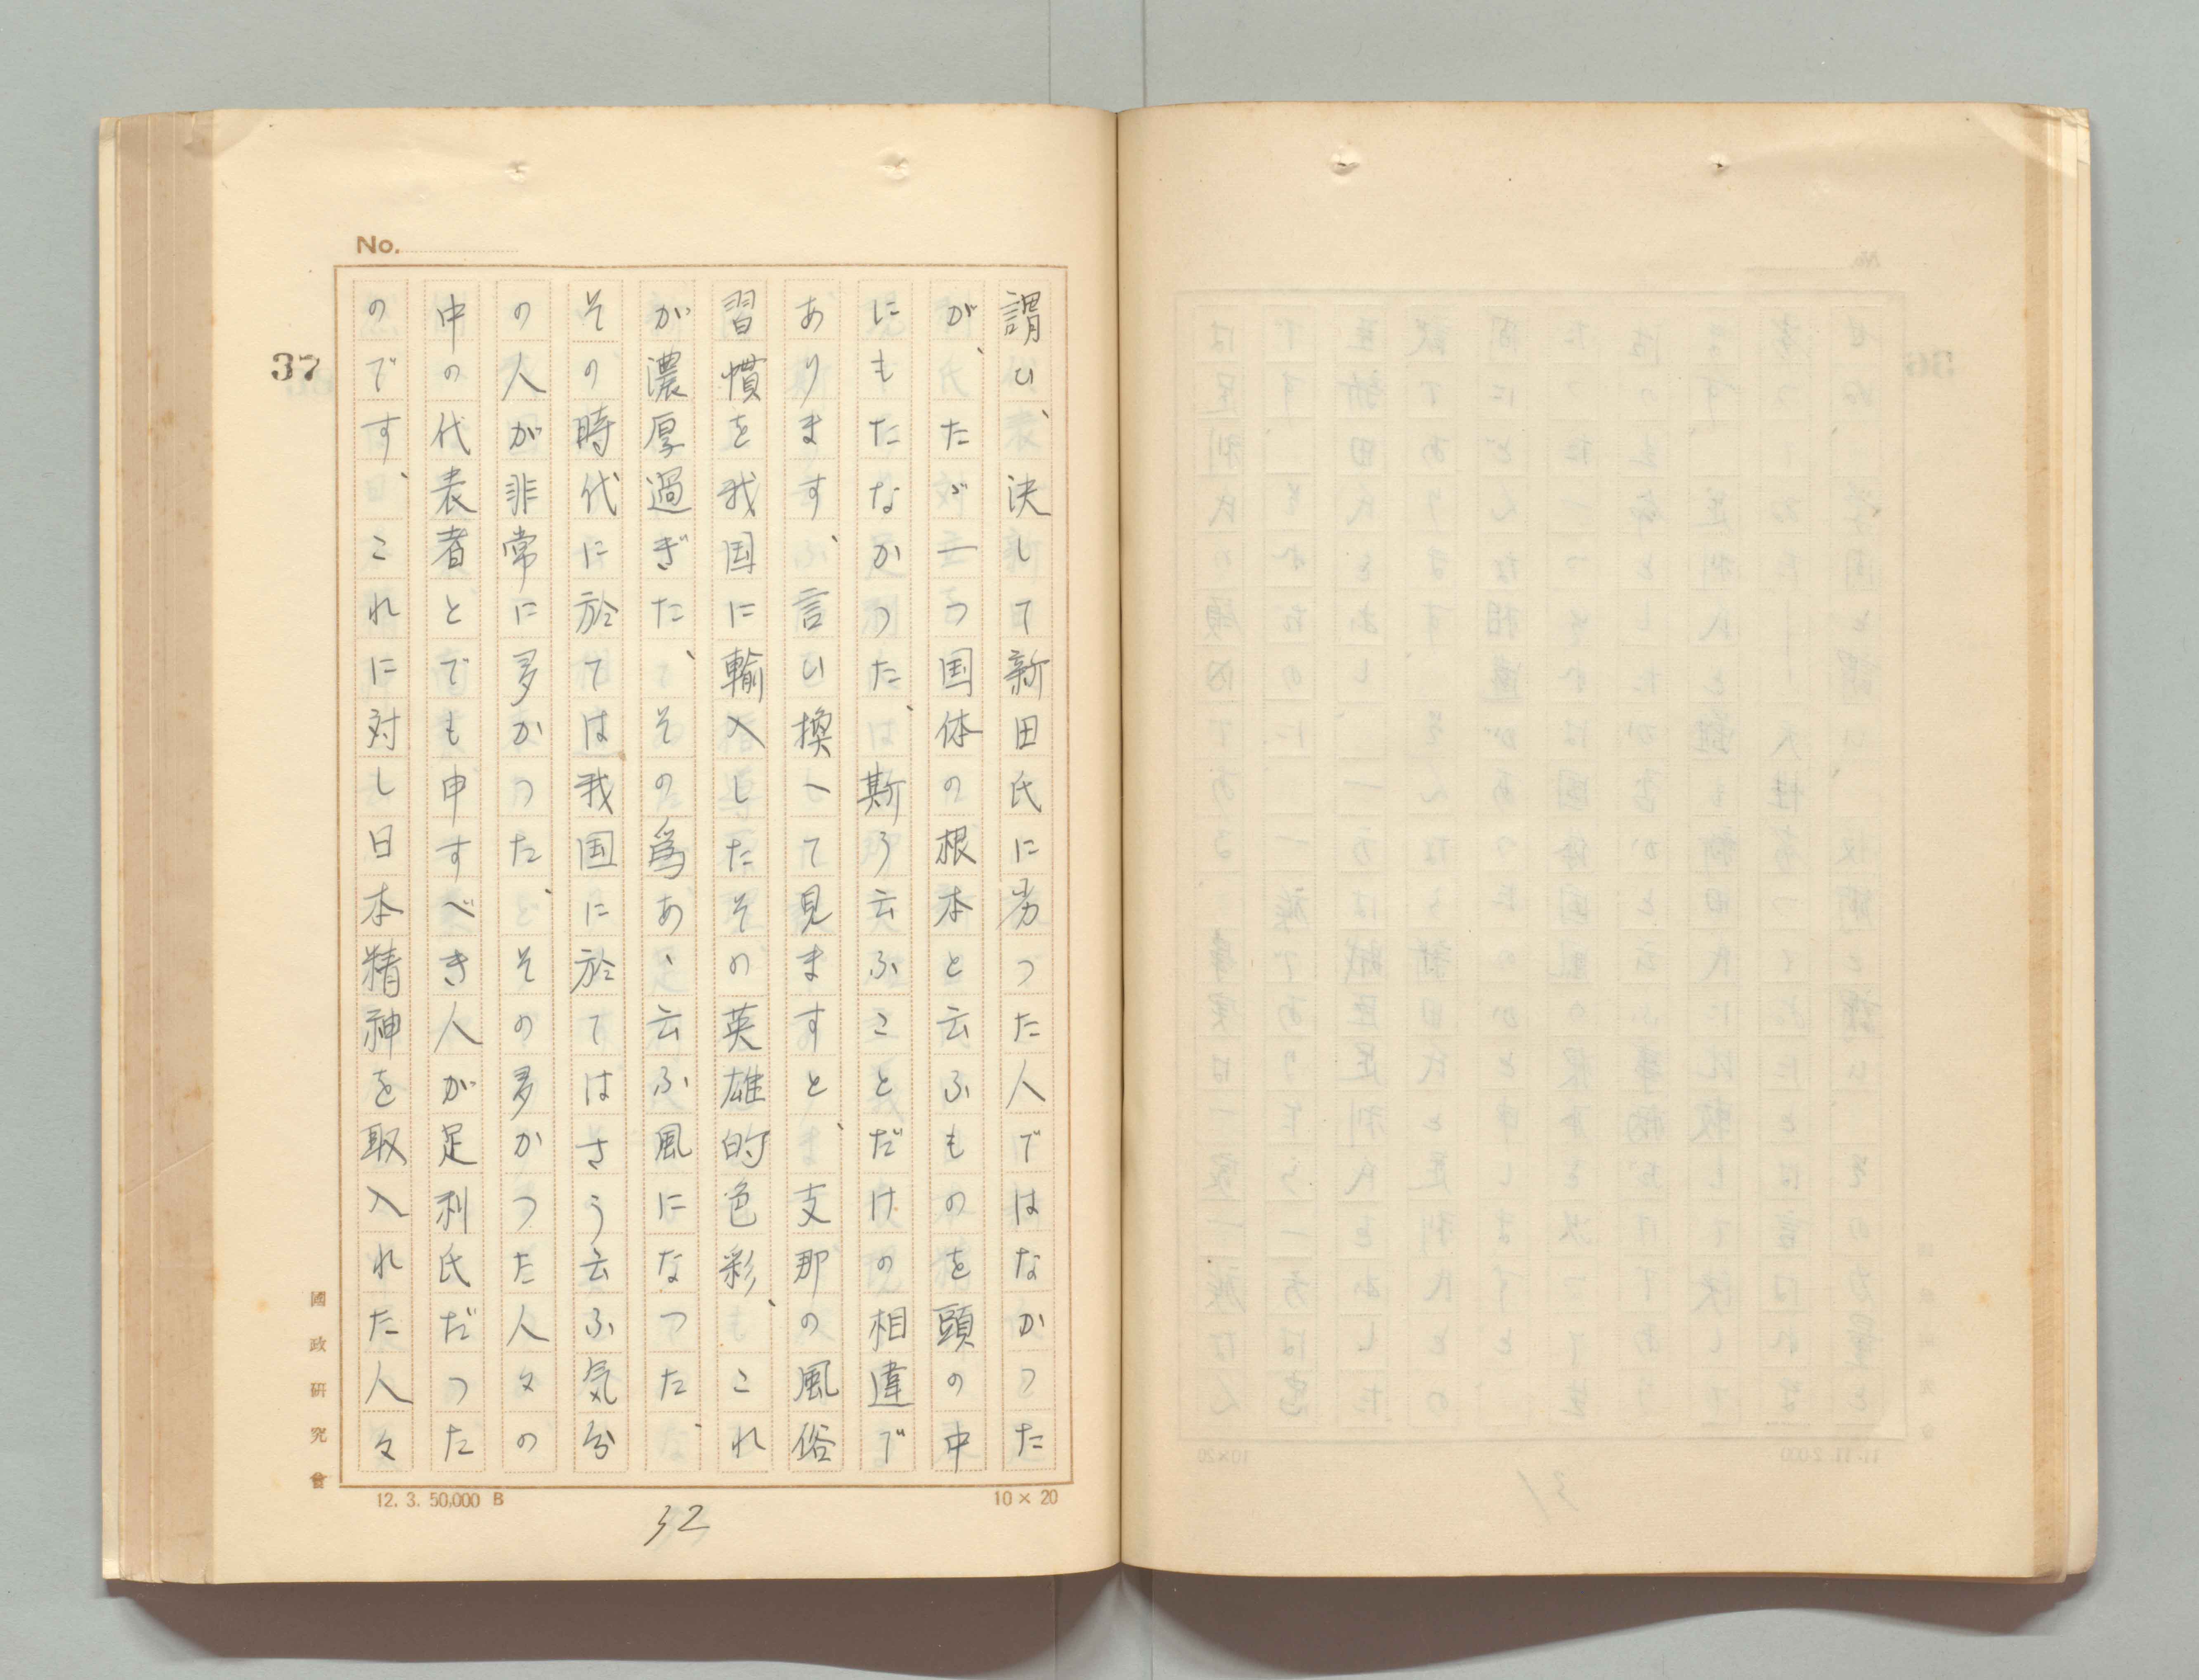 No.
37
謂ひ、決して新田氏に劣つた人ではなかつた
が、たゞ一つ国体の根本と云ふものを頭の中
にもたなかつた、斯う云ふことだけの相違で
あります、言ひ換へて見ますと、支那の風俗
習慣を我国に輸入したその英雄的色彩、これ
が濃厚過ぎた、その為あゝ云ふ風になつた、
その時代に於ては我国に於てはさう云ふ気分
の人が非常に多かつた、その多かつた人々の
中の代表者とでも申すべき人が足利氏だつた
のです、これに対し日本精神を取入れた人々
國政研究會
12. 3. 50,000 B
10 × 20
32